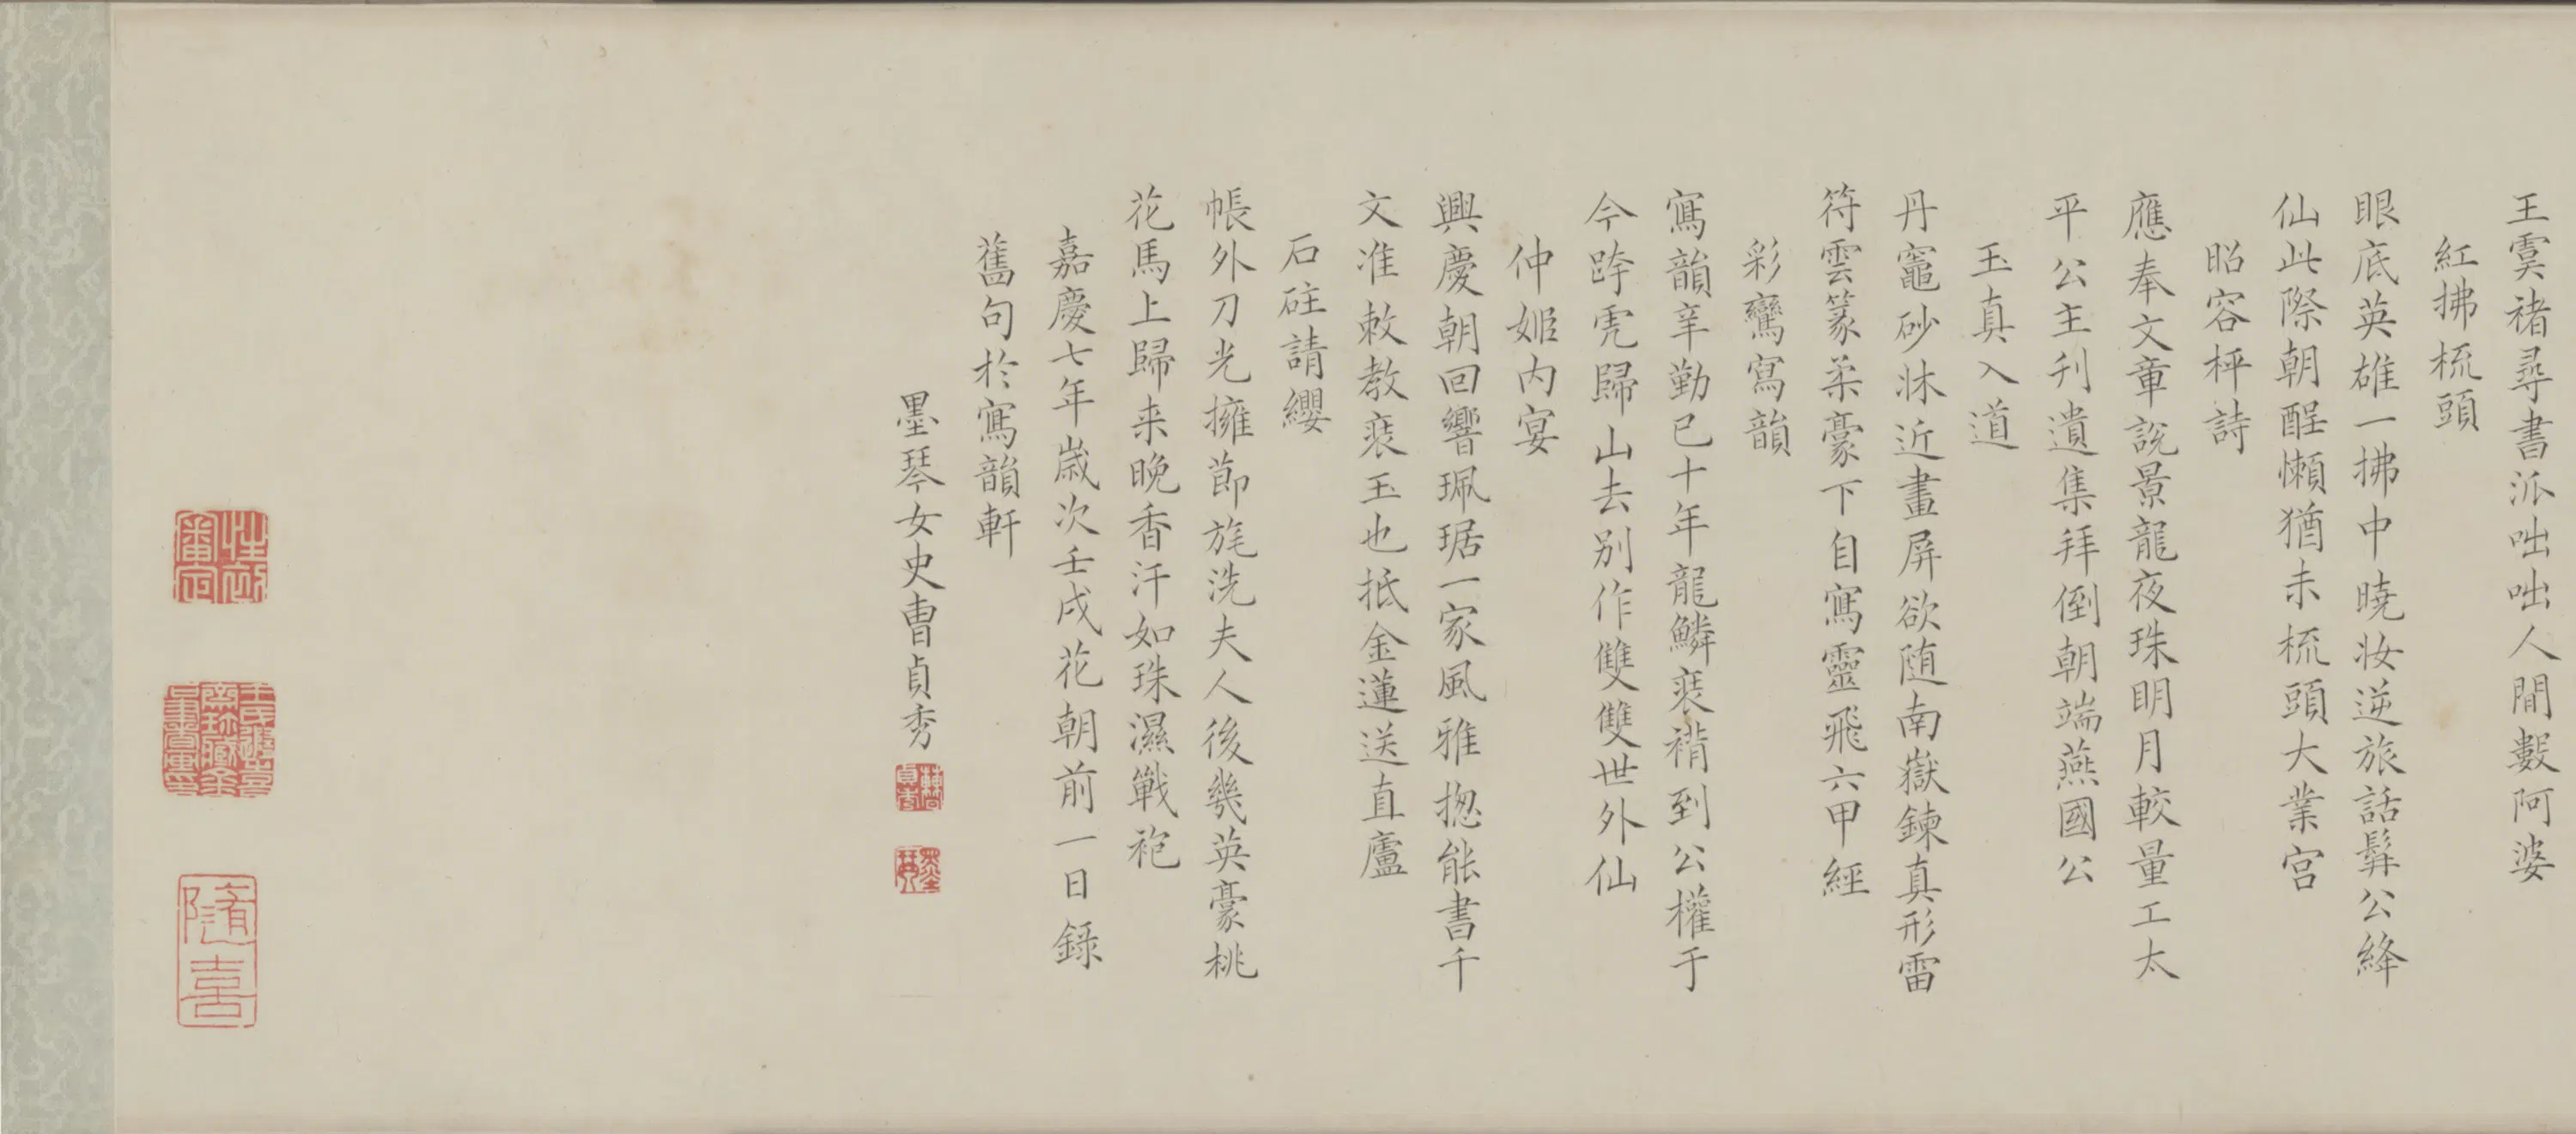 王霙褚尋書派咄咄人間數阿婆
紅拂梳頭
眼底英雄一拂中曉妆逆旅話髯公絳
仙此際朝酲懶猶未梳頭大業宫
昭容枰詩
應奉文章說景龍夜珠明月較量工太
平公主刋遺集拜倒朝端燕國公
玉真入道
丹竈砂牀近畫屏欲随南嶽鍊真形雷
符雲篆柔豪下自寫靈飛六甲經
彩鸞寫韻
寫韻辛勤已十年龍鱗裝褙到公權于
今跨虎歸山去别作雙雙世外仙
仲姬内宴
興慶朝回響珮琚一家風雅揔能書千
文准敕教裝玉也抵金蓮送直廬
石砫請纓
帳外刀光擁節旄洗夫人後幾英豪桃
花馬上歸来晚香汗如珠濕戰袍
嘉慶七年嵗次壬戌花朝前一日錄
舊句於寫韻軒
墨琴女史曹貞秀
墨琴
隨喜